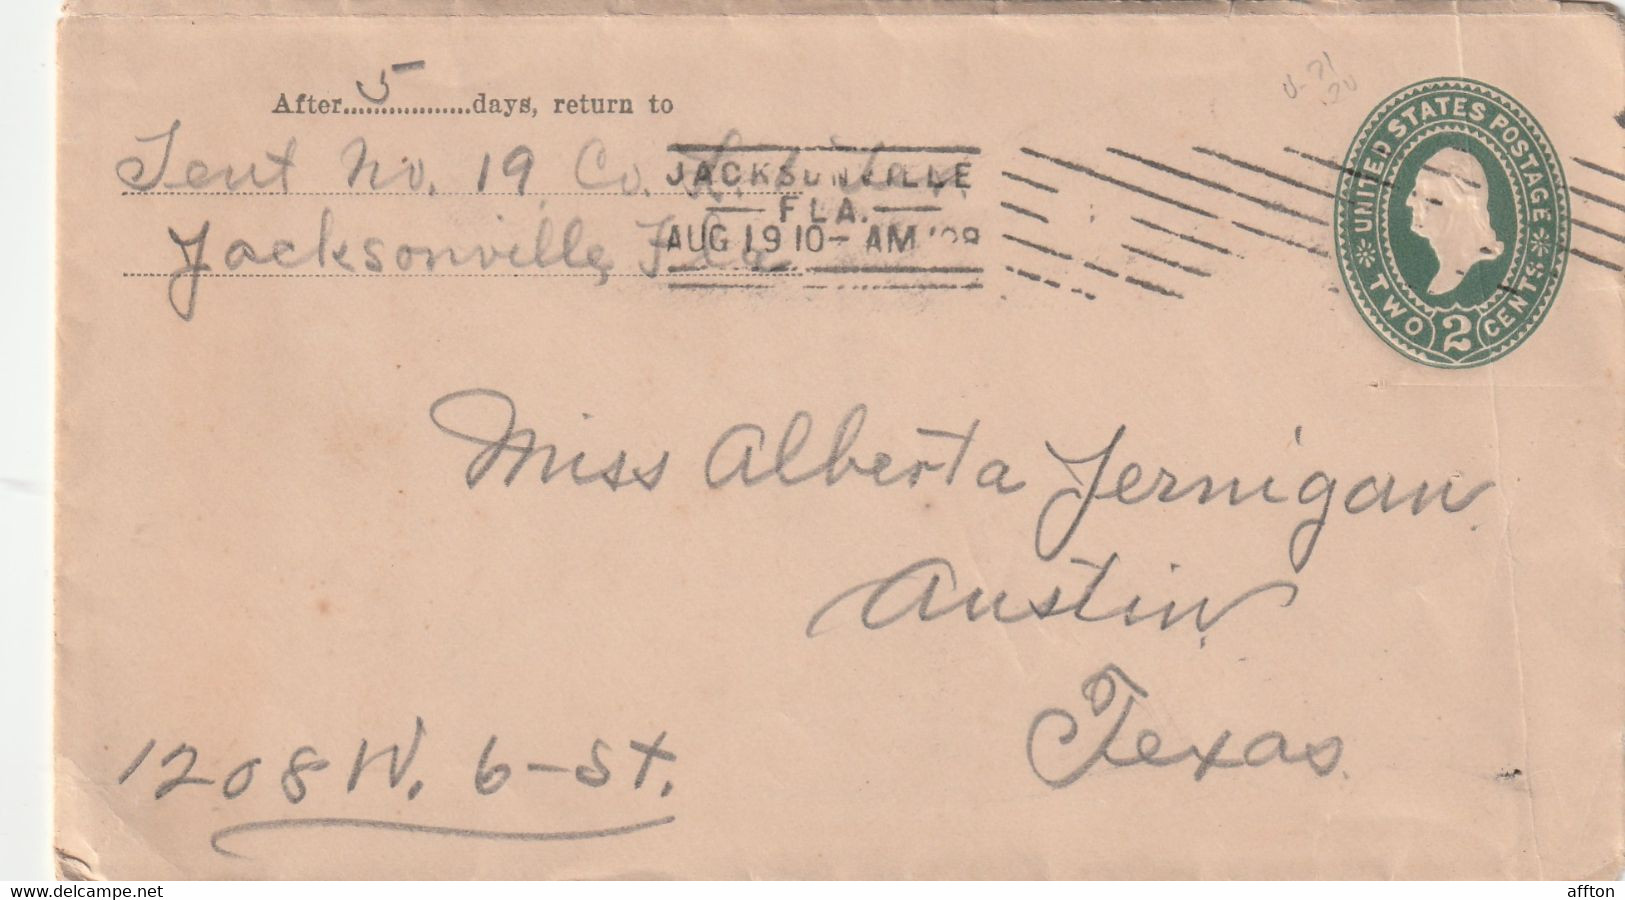 After 5 days, return to
Tent No. 19 Co.
Jacksonville, Fla
JACKSONVILLE
FLA.
AUG 19 10- AM '98
UNITED STATES POSTAGE
TWO 2 CENTS
Miss Alberta Jernigan
Austin,
Texas.
1208 W. 6-St.
www.delcampe.net
affton